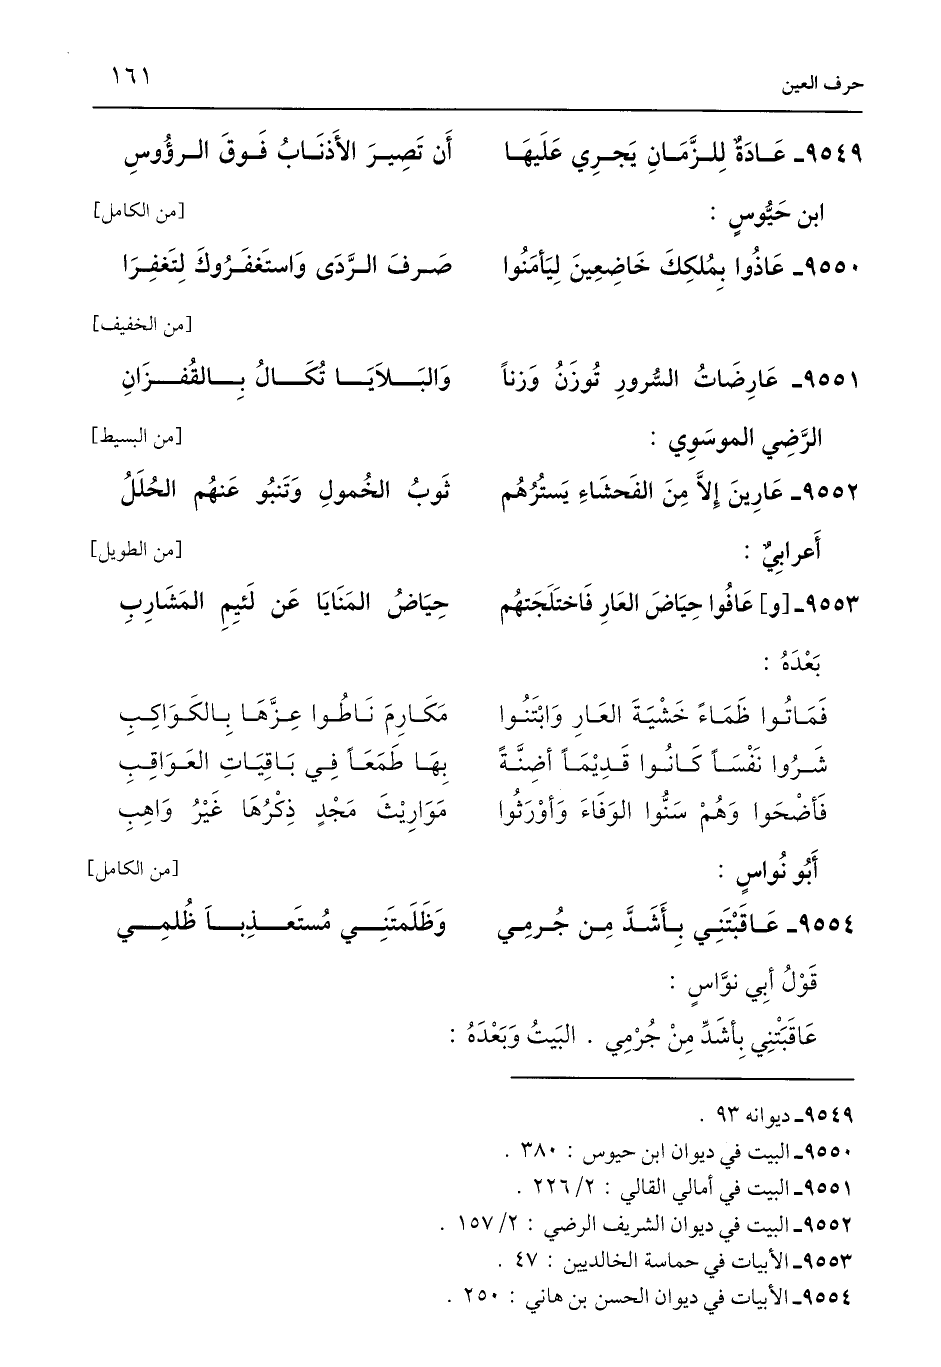 حرف العين ١٦١
٩٥٤٩ـ عَادَةٌ لِلزَّمَانِ يَجرِي عَلَيهَا أَن تَصِيرَ الأَذنَابُ فَوقَ الرؤُوسِ
ابن حَيُّوسٍ : [من الكامل]
٩٥٥٠ـ عَاذُوا بِمُلكِكَ خَاضِعِينَ لِيَأمَنُوا صَرفَ الرَّدَى وَاستَغفَرُوكَ لِتَغفِرَا
[من الخفيف]
٩٥٥١ـ عَارِضَاتُ السُّرورِ تُوزَنُ وَزناً وَالبَلاَيَا تُكَالُ بِالقُفزَانِ
الرَّضِي الموسَوِي : [من البسيط]
٩٥٥٢ـ عَارِينَ إِلاَّ مِنَ الفَحشَاءِ يَستُرُهُم ثَوبُ الخُمولِ وَتَنبُو عَنهُم الحُلَلُ
أَعرابِيٌ : [من الطويل]
٩٥٥٣ـ [و] عَافُوا حِيَاضَ العَارِ فَاختَلَجَتهُم حِيَاضُ المَنَايَا عَن لَئِيمِ المَشَارِبِ
بَعْدَهُ :
فَمَاتُوا ظَمَاءً خَشْيَةَ العَارِ وَابْتَنُوا مَكَارِمَ نَاطُوا عِزَّهَا بِالكَوَاكِبِ
شَرُوا نَفْسَاً كَانُوا قَدِيْمَاً أضِنَّةً بِهَا طَمَعَاً فِي بَاقِيَاتِ العَوَاقِبِ
فَأضْحَوا وَهُمْ سَنُّوا الوَفَاءَ وَأوْرَثُوا مَوَارِيْثَ مَجْدٍ ذِكْرُهَا غَيْرُ وَاهِبِ
أَبُو نُواسٍ : [من الكامل]
٩٥٥٤ـ عَاقَبْتَنِي بِأَشَدَّ مِن جُرمِي وَظَلَمتَنِي مُستَعذِبا ظُلمِي
قَوْلُ أبِي نوَّاسٍ :
عَاقَبْتْنِي بِأشَدِّ مِنْ جُرْمِي . البَيتُ وَبَعْدَهُ :
٩٥٤٩ـ ديوانه ٩٣ .
٩٥٥٠ـ البيت في ديوان ابن حيوس : ٣٨٠ .
٩٥٥١ـ البيت في أمالي القالي : ٢/ ٢٢٦ .
٩٥٥٢ـ البيت في ديوان الشريف الرضي : ٢/ ١٥٧ .
٩٥٥٣ـ الأبيات في حماسة الخالديين : ٤٧ .
٩٥٥٤ـ الأبيات في ديوان الحسن بن هاني : ٢٥٠ .